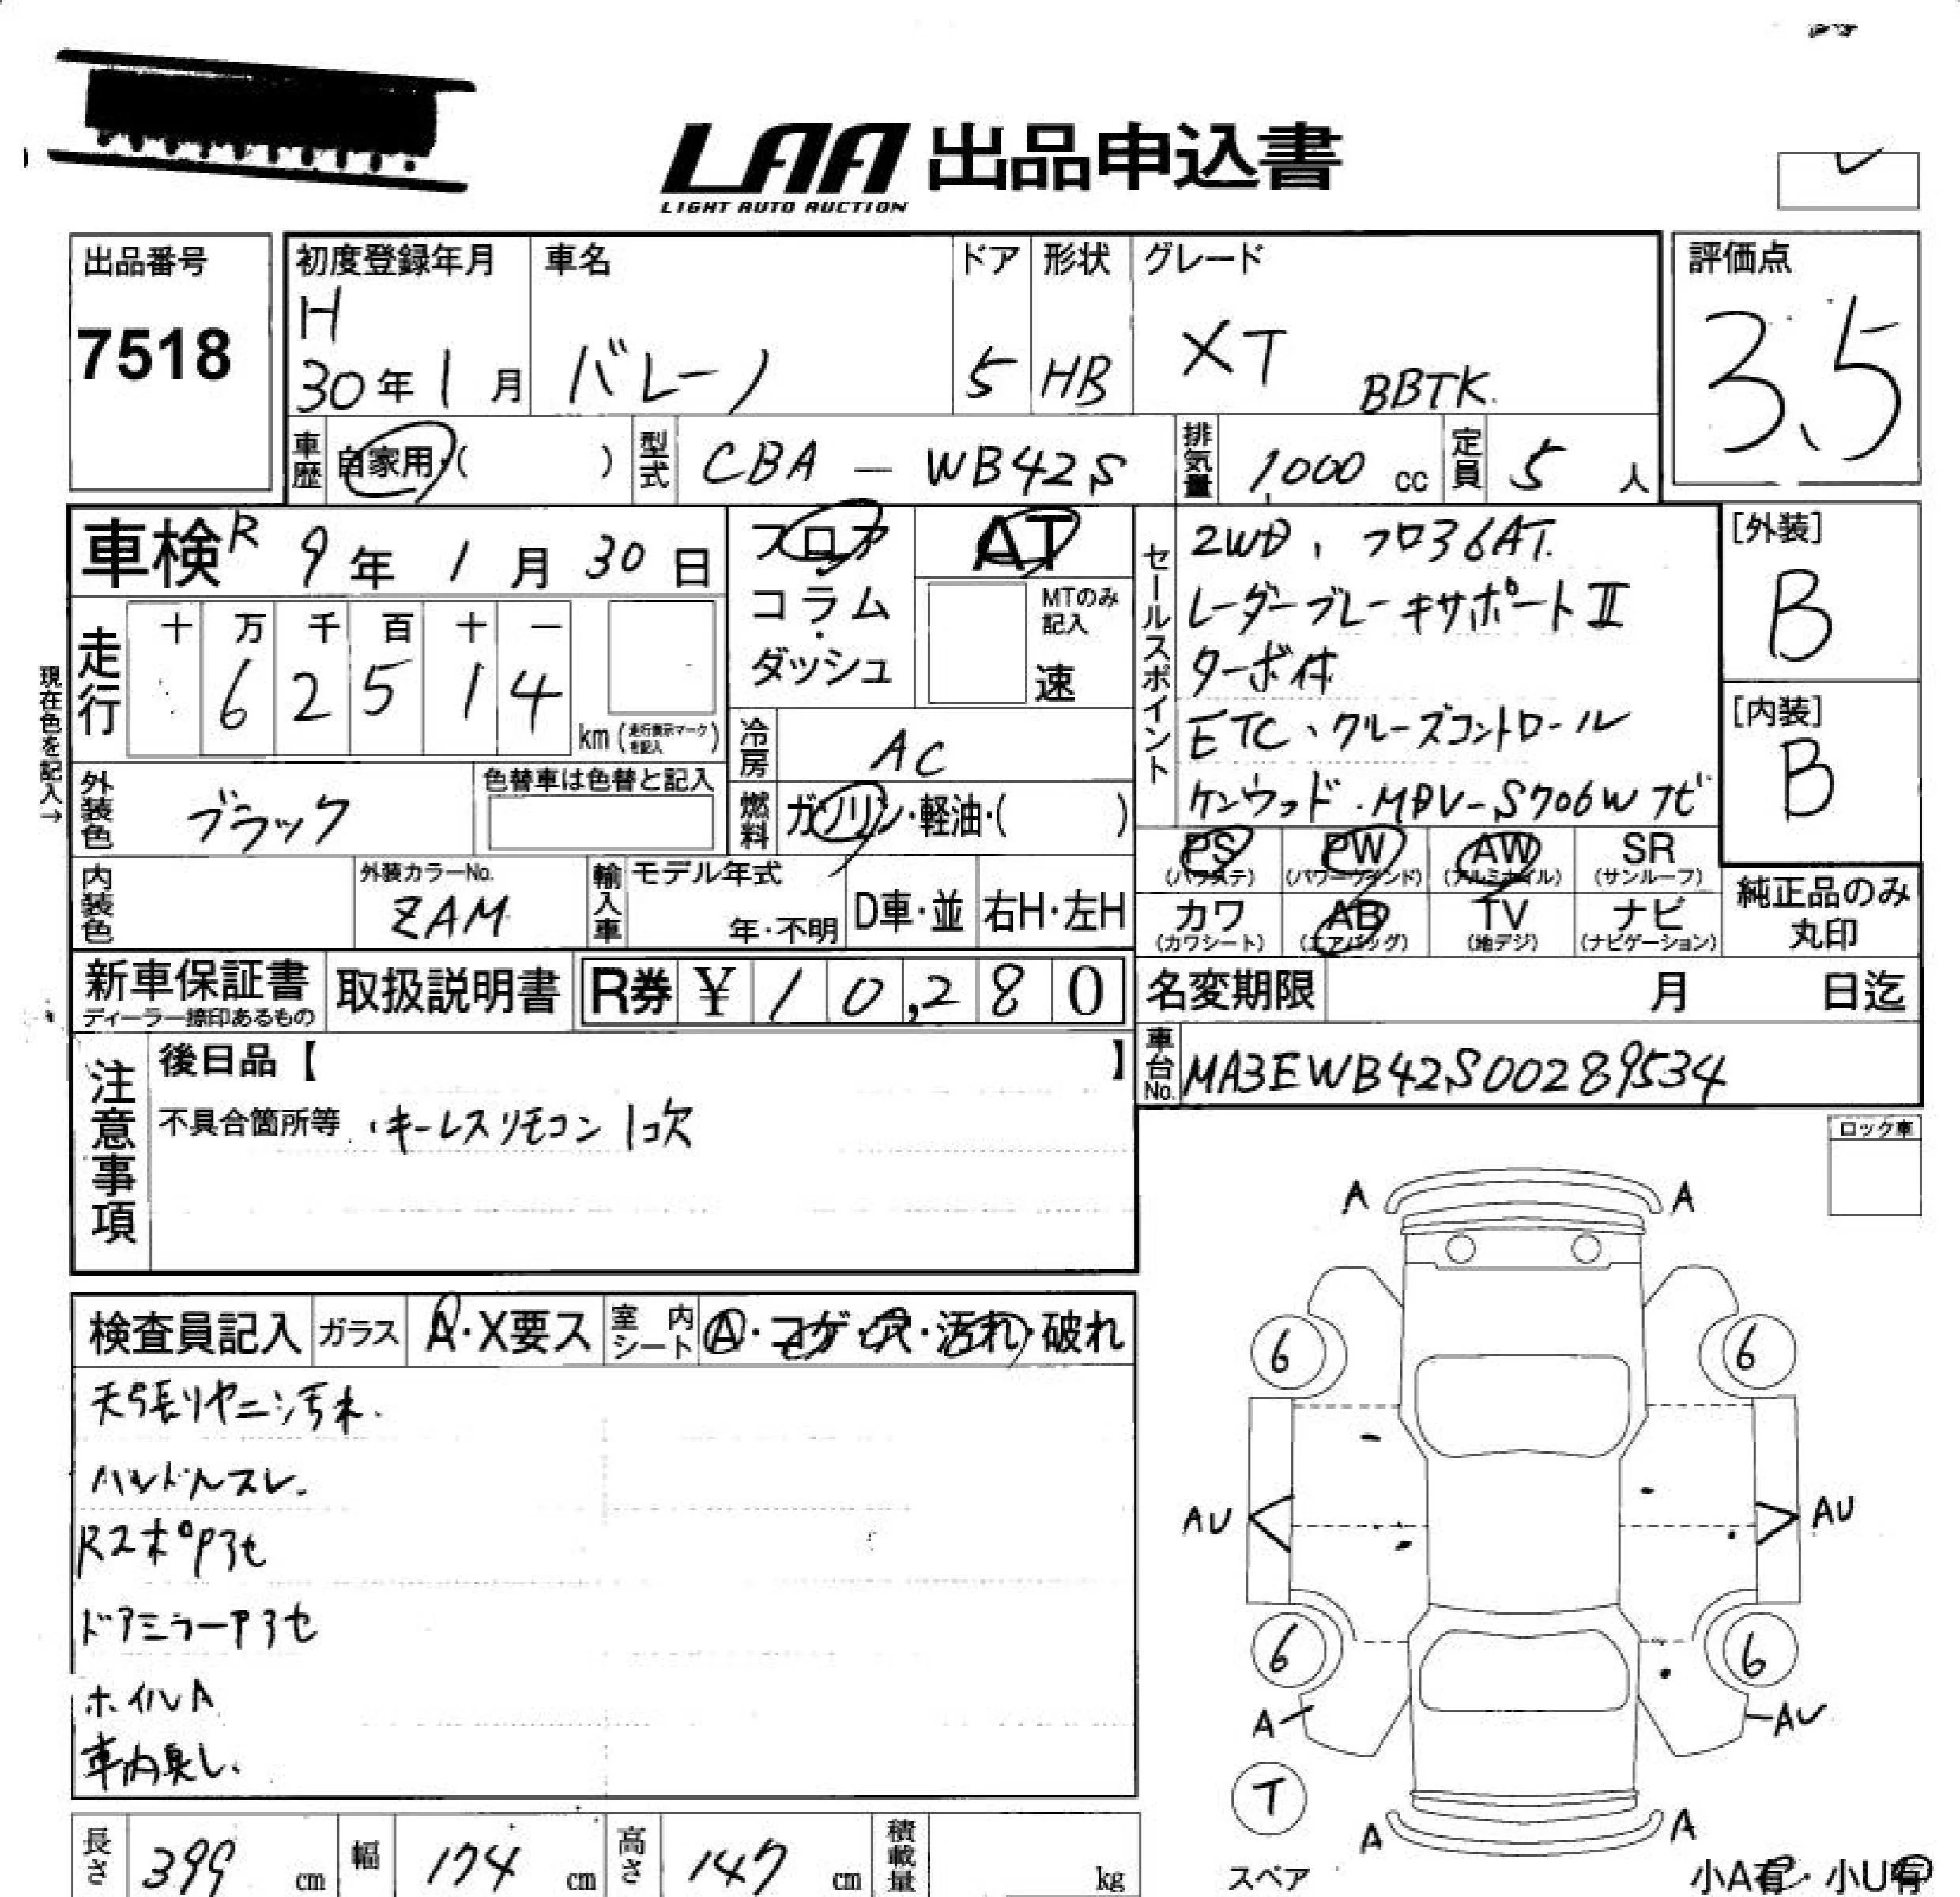 LAA 出品申込書
LIGHT AUTO AUCTION
出品番号
7518
初度登録年月
H
30年 1月
車名
バレーノ
ドア
5
形状
HB
グレード
XT BBTK.
評価点
3.5
車歴 自家用・( )
型式 CBA - WB42S
排気量 1,000 cc
定員 5 人
車検 R 9年 1月 30日
フロア
コラム
・
ダッシュ
AT
MTのみ
記入
速
現在色を記入→
走行
十 万 千 百 十 一
6 2 5 1 4
km (走行表示マークを記入)
冷房 AC
外装色 ブラック
色替車は色替と記入
燃料 ガソリン・軽油・( )
内装色
外装カラーNo.
ZAM
輸入車
モデル年式
年・不明
D車・並
右H・左H
セールスポイント
2WD、フロア6AT.
レーダーブレーキサポートⅡ
ターボ付
ETC、クルーズコントロール
ケンウッド.MDV-S706Wナビ
[外装]
B
[内装]
B
PS (パワステ)
PW (パワーウインド)
AW (アルミホイル)
SR (サンルーフ)
カワ (カワシート)
AB (エアバッグ)
TV (地デジ)
ナビ (ナビゲーション)
純正品のみ
丸印
新車保証書
ディーラー捺印あるもの
取扱説明書
R券 ¥ 10,280
名変期限 月 日迄
車台No. MA3EWB42S00289534
注意事項
後日品【 】
不具合箇所等 ・キーレスリモコン 1コ欠
ロック車
検査員記入
ガラス A・X要ス
室内シート A・コゲ・穴・汚れ・破れ
天張りヤニ汚れ.
ハンドルスレ.
Rスポアラセ
ドアミラーアラセ
ホイルA
車内臭し.
A A
6 6
AU AU
6 6
A AU
T
スペア
A A
小A有・小U有
長さ 399 cm
幅 174 cm
高さ 147 cm
積載量 kg